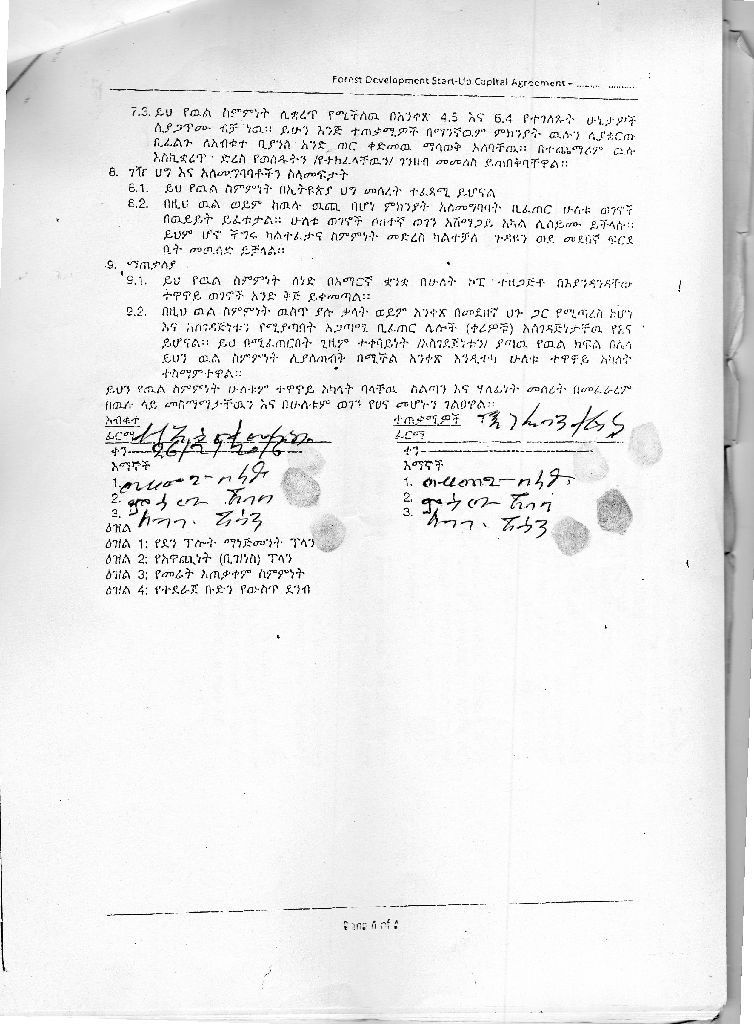 Forest Development Start-Up Capital Agreement –
7.3. ይህ የዉል ስምምነት ሊቋረጥ የሚችለዉ በአንቀጽ 4.5 እና 6.4 የተገለጹት ሁኔታዎች
ሲያጋጥሙ ብቻ ነዉ። ይሁን እንጅ ተጠቃሚዎች በማንኛዉም ምክንያት ዉሉን ሲያቋርጡ
ቢፈልጉ ለአብቁተ ቢያንስ አንድ ወር ቀድመዉ ማሳወቅ አለባቸዉ። በተጨማሪም ዉሉ
እስኪቋረጥ ድረስ የወሰዱትን /የተከፈላቸዉን/ ገንዘብ መመለስ ይጠበቅባቸዋል።
8. ገዥ ህግ እና አለመግባባቶችን ስለመፍታት
8.1. ይህ የዉል ስምምነት በኢትዮጵያ ህግ መሰረት ተፈጻሚ ይሆናል
8.2. በዚህ ዉል ወይም ከዉሉ ዉጪ በሆነ ምክንያት አለመግባባት ቢፈጠር ሁለቱ ወገኖች
በዉይይት ይፈቱታል። ሁለቱ ወገኖች ሶስተኛ ወገን አሸማጋይ አካል ሊሰይሙ ይችላሉ።
ይህም ሆኖ ችግሩ ካልተፈታና ስምምነት መድረስ ካልተቻለ ጉዳዩን ወደ መደበኛ ፍርድ
ቤት መዉሰድ ይቻላል።
9. ማጠቃለያ
9.1. ይህ የዉል ስምምነት ሰነድ በአማርኛ ቋንቋ በሁለት ኮፒ ተዘጋጅቶ በእያንዳንዳቸው
ተዋዋይ ወገኖች አንድ ቅጅ ይቀመጣል።
9.2. በዚህ ዉል ስምምነት ዉስጥ ያሉ ቃላት ወይም አንቀጽ በመደበኛ ህጉ ጋር የሚጣረስ ከሆነ
እና አስገዳጅነቱን የሚያጣበት አጋጣሚ ቢፈጠር ሌሎች (ቀሪዎቹ) አስገዳጅነታቸዉ የጸና
ይሆናል። ይህ በሚፈጠርበት ጊዜም ተቀባይነት /አስገዳጅነቱን/ ያጣዉ የዉል ክፍል በሌላ
ይህን ዉል ስምምነት ሊያስጠብቅ በሚችል አንቀጽ እንዲተካ ሁለቱ ተዋዋይ አካላት
ተስማምተዋል።
ይህን የዉል ስምምነት ሁለቱም ተዋዋይ አካላት ባላቸዉ ስልጣን እና ሃላፊነት መሰረት በመፈራረም
በዉሉ ላይ መስማማታቸዉን እና በሁለቱም ወገን የጸና መሆኑን ገልፀዋል።
አብቁተ
ፊርማ
ቀን
እማኞች
1.
2.
3.
ተጠቃሚዎች
ፊርማ
ቀን
እማኞች
1.
2.
3.
ዕዝል
ዕዝል 1: የደን ፕሎት ማኔጅመንት ፕላን
ዕዝል 2: የአዋጪነት (ቢዝነስ) ፕላን
ዕዝል 3: የመሬት አጠቃቀም ስምምነት
ዕዝል 4: የተደራጀ ቡድን የውስጥ ደንብ